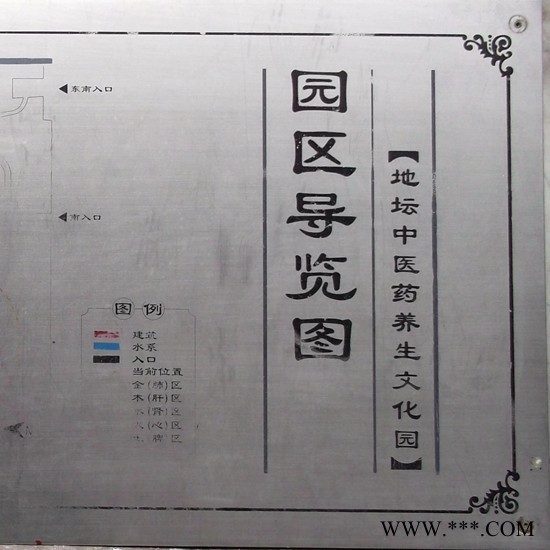 园区导览图
【地坛中医药养生文化园】
东南入口
南入口
图例
建筑
水系
入口
当前位置
金(肺)区
木(肝)区
水(肾)区
火(心)区
土(脾)区
WWW.***.COM